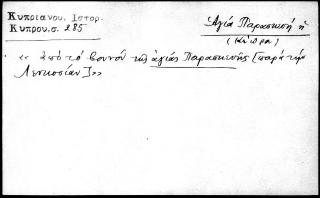 Κυπριανου. Ιστορ.
Κυπρου.σ. 285
Αγία Παρασκευή ἡ
(Κύπρος)
« ἀπὸ τὸ βουνὸν τῆς ἁγίας Παρασκευῆς [παρὰ τὴν
Λευκοσίαν]»